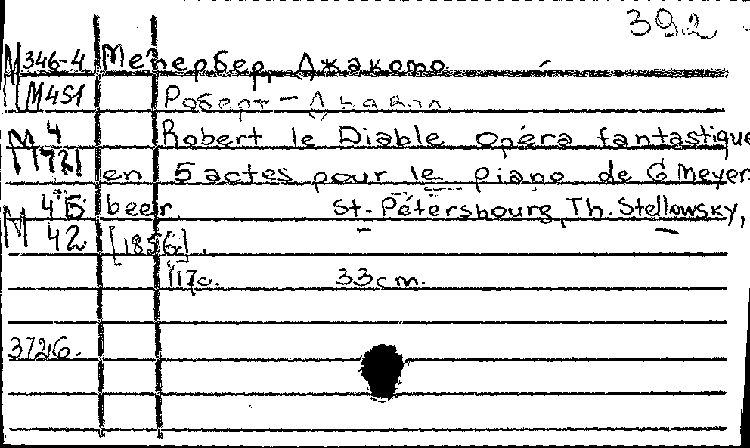 392
М346-4 Мейербер, Джакомо
М451 Роберт-Дьявол.
М4 Robert le Diable opéra fantastique
М721 en 5 actes pour le piano de G Meyer-
М4Б beer. St-Pétersbourg, Th. Stellowsky,
42 [1856].
117c. 33cm.
3726.